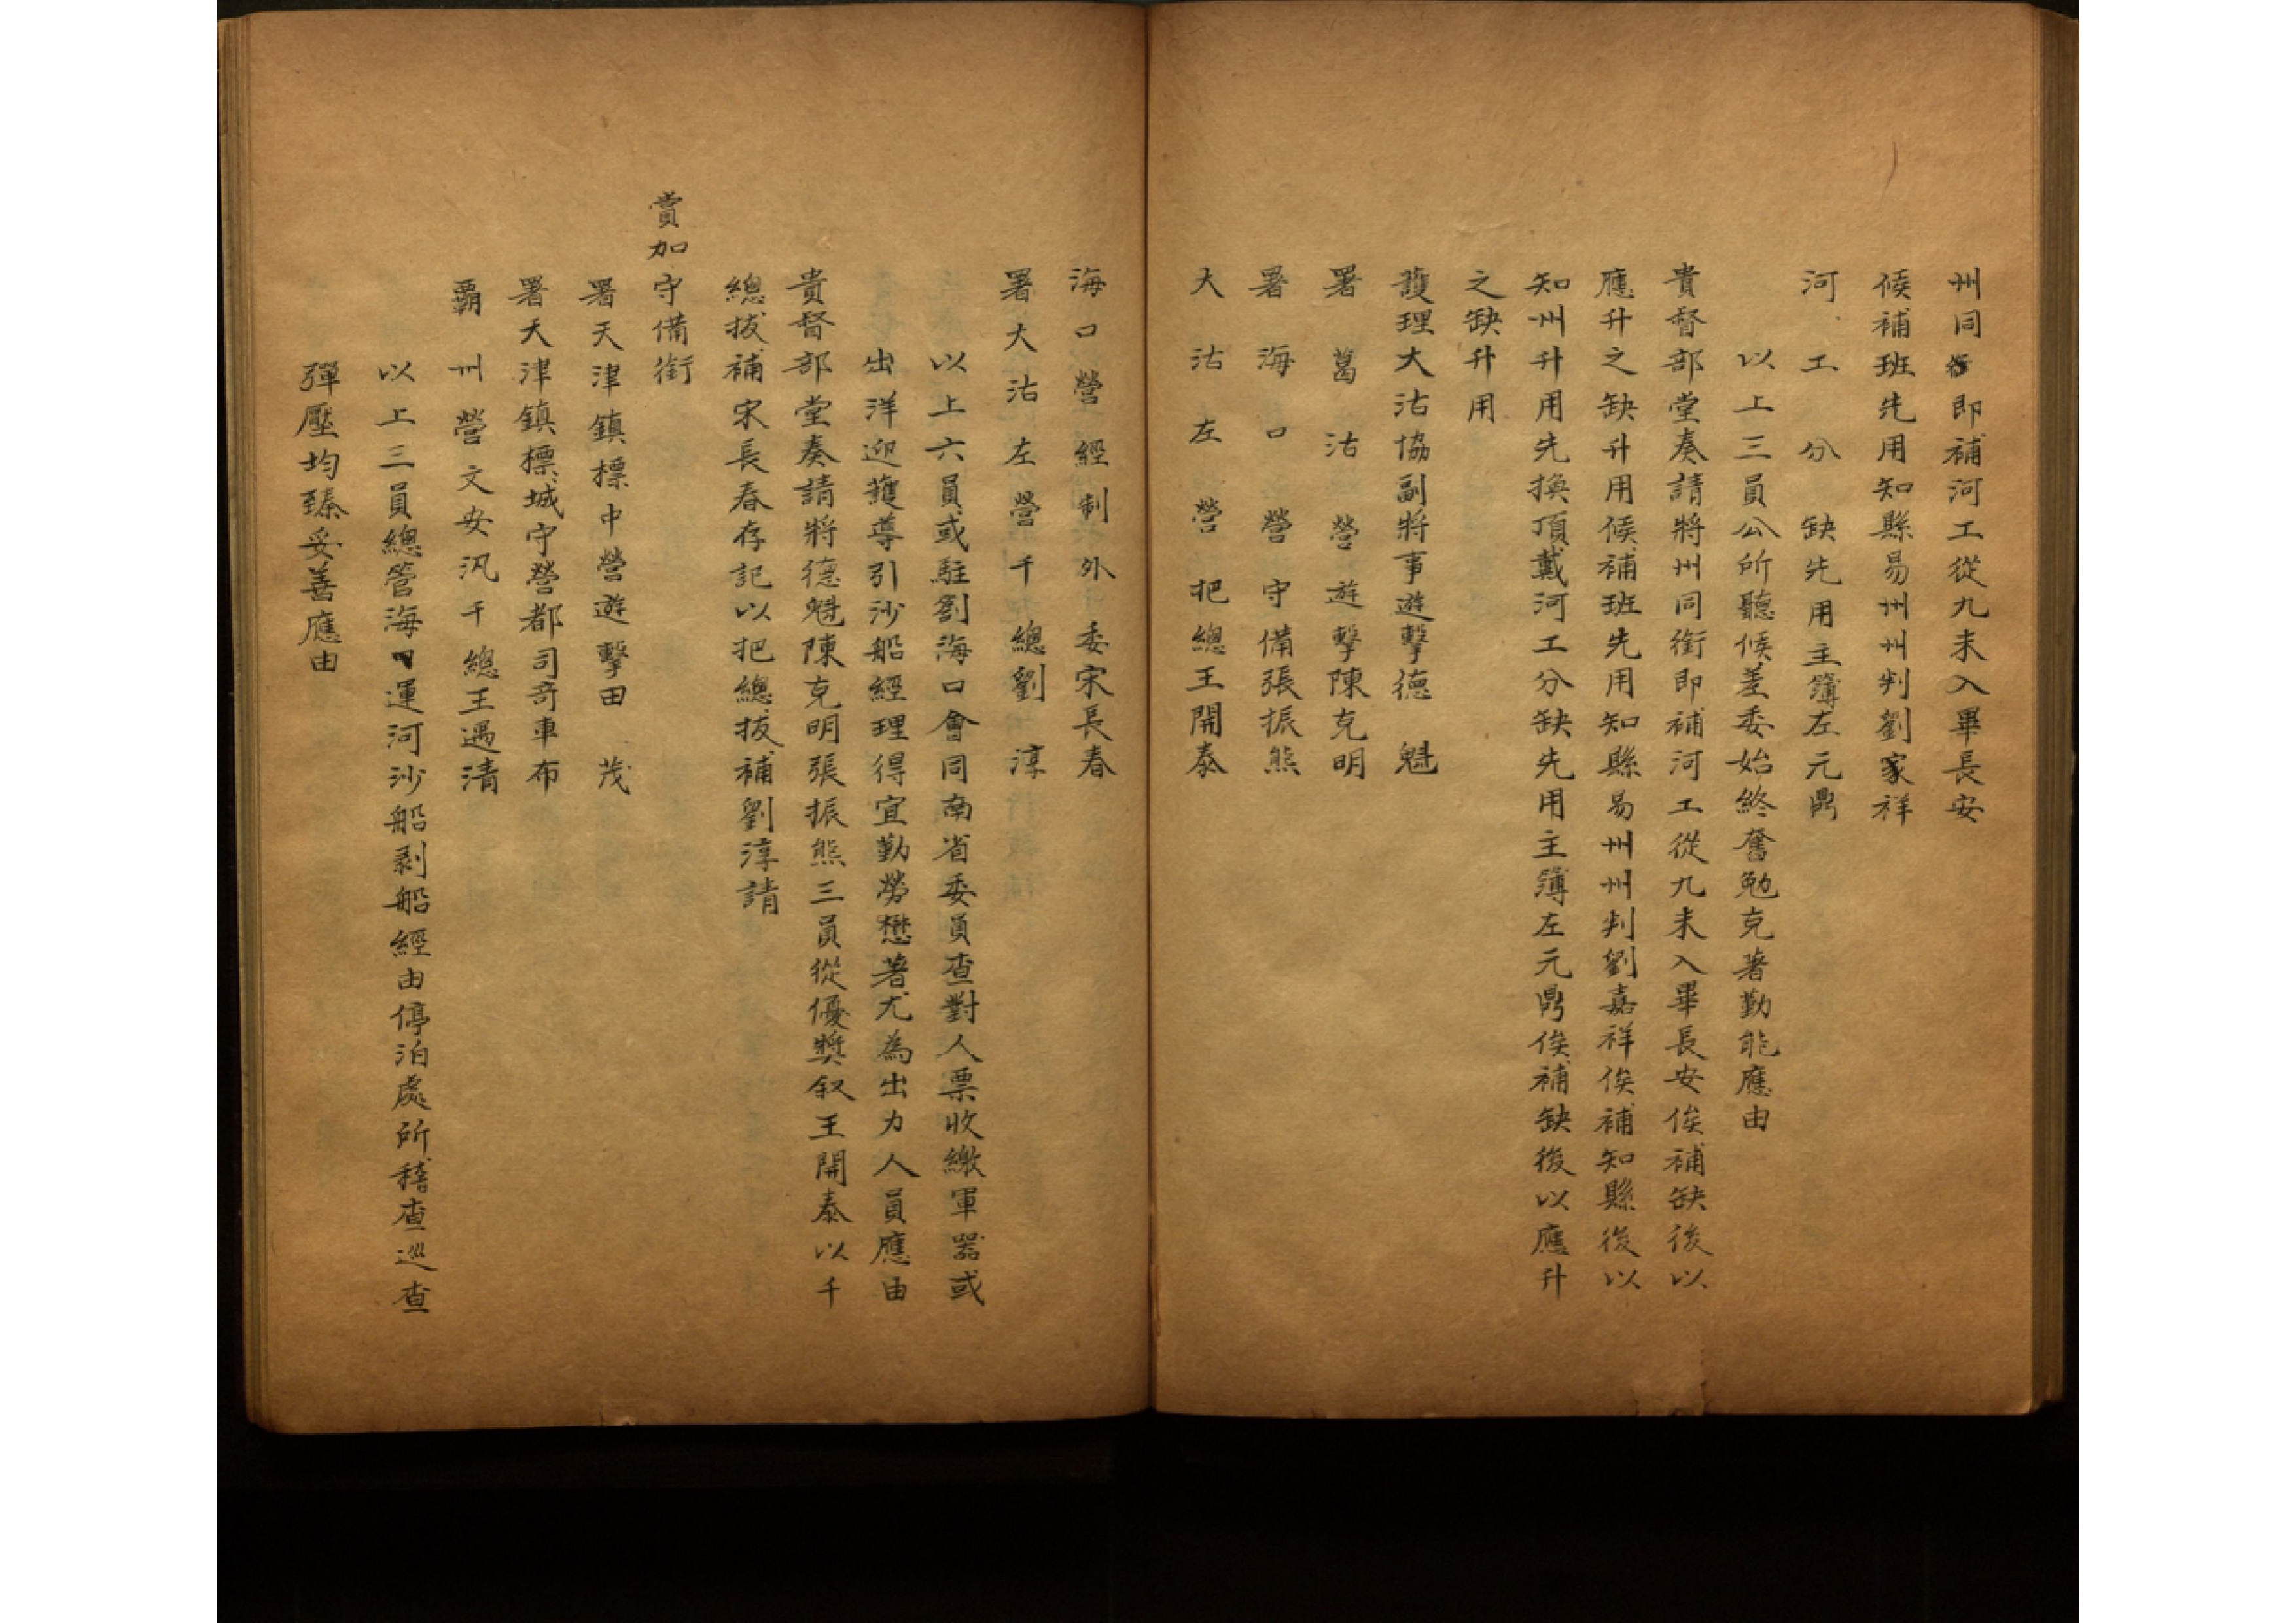 州同銜即補河工從九未入畢長安
候補班先用知縣易州州判劉家祥
河工分缺先用主簿左元鼎
以上三員公所聽候差委始終奮勉克著勤能應由
貴督部堂奏請將州同銜即補河工從九未入畢長安俟補缺後以
應升之缺升用候補班先用知縣易州州判劉嘉祥俟補知縣後以
知州升用先換頂戴河工分缺先用主簿左元鼎俟補缺後以應升
之缺升用
護理大沽協副將事遊擊德魁
署葛沽營遊擊陳克明
署海口營守備張振熊
大沽左營把總王開泰
海口營經制外委宋長春
署大沽左營千總劉淳
以上六員或駐劄海口會同南省委員查對人票收繳軍器或
出洋迎護導引沙船經理得宜勤勞懋著尤為出力人員應由
貴督部堂奏請將德魁陳克明張振熊三員從優獎叙王開泰以千
總拔補宋長春存記以把總拔補劉淳請
賞加守備銜
署天津鎮標中營遊擊田茂
署天津鎮標城守營都司奇車布
霸州營文安汛千總王遇清
以上三員總管海口運河沙船剥船經由停泊處所稽查巡查
彈壓均臻妥善應由